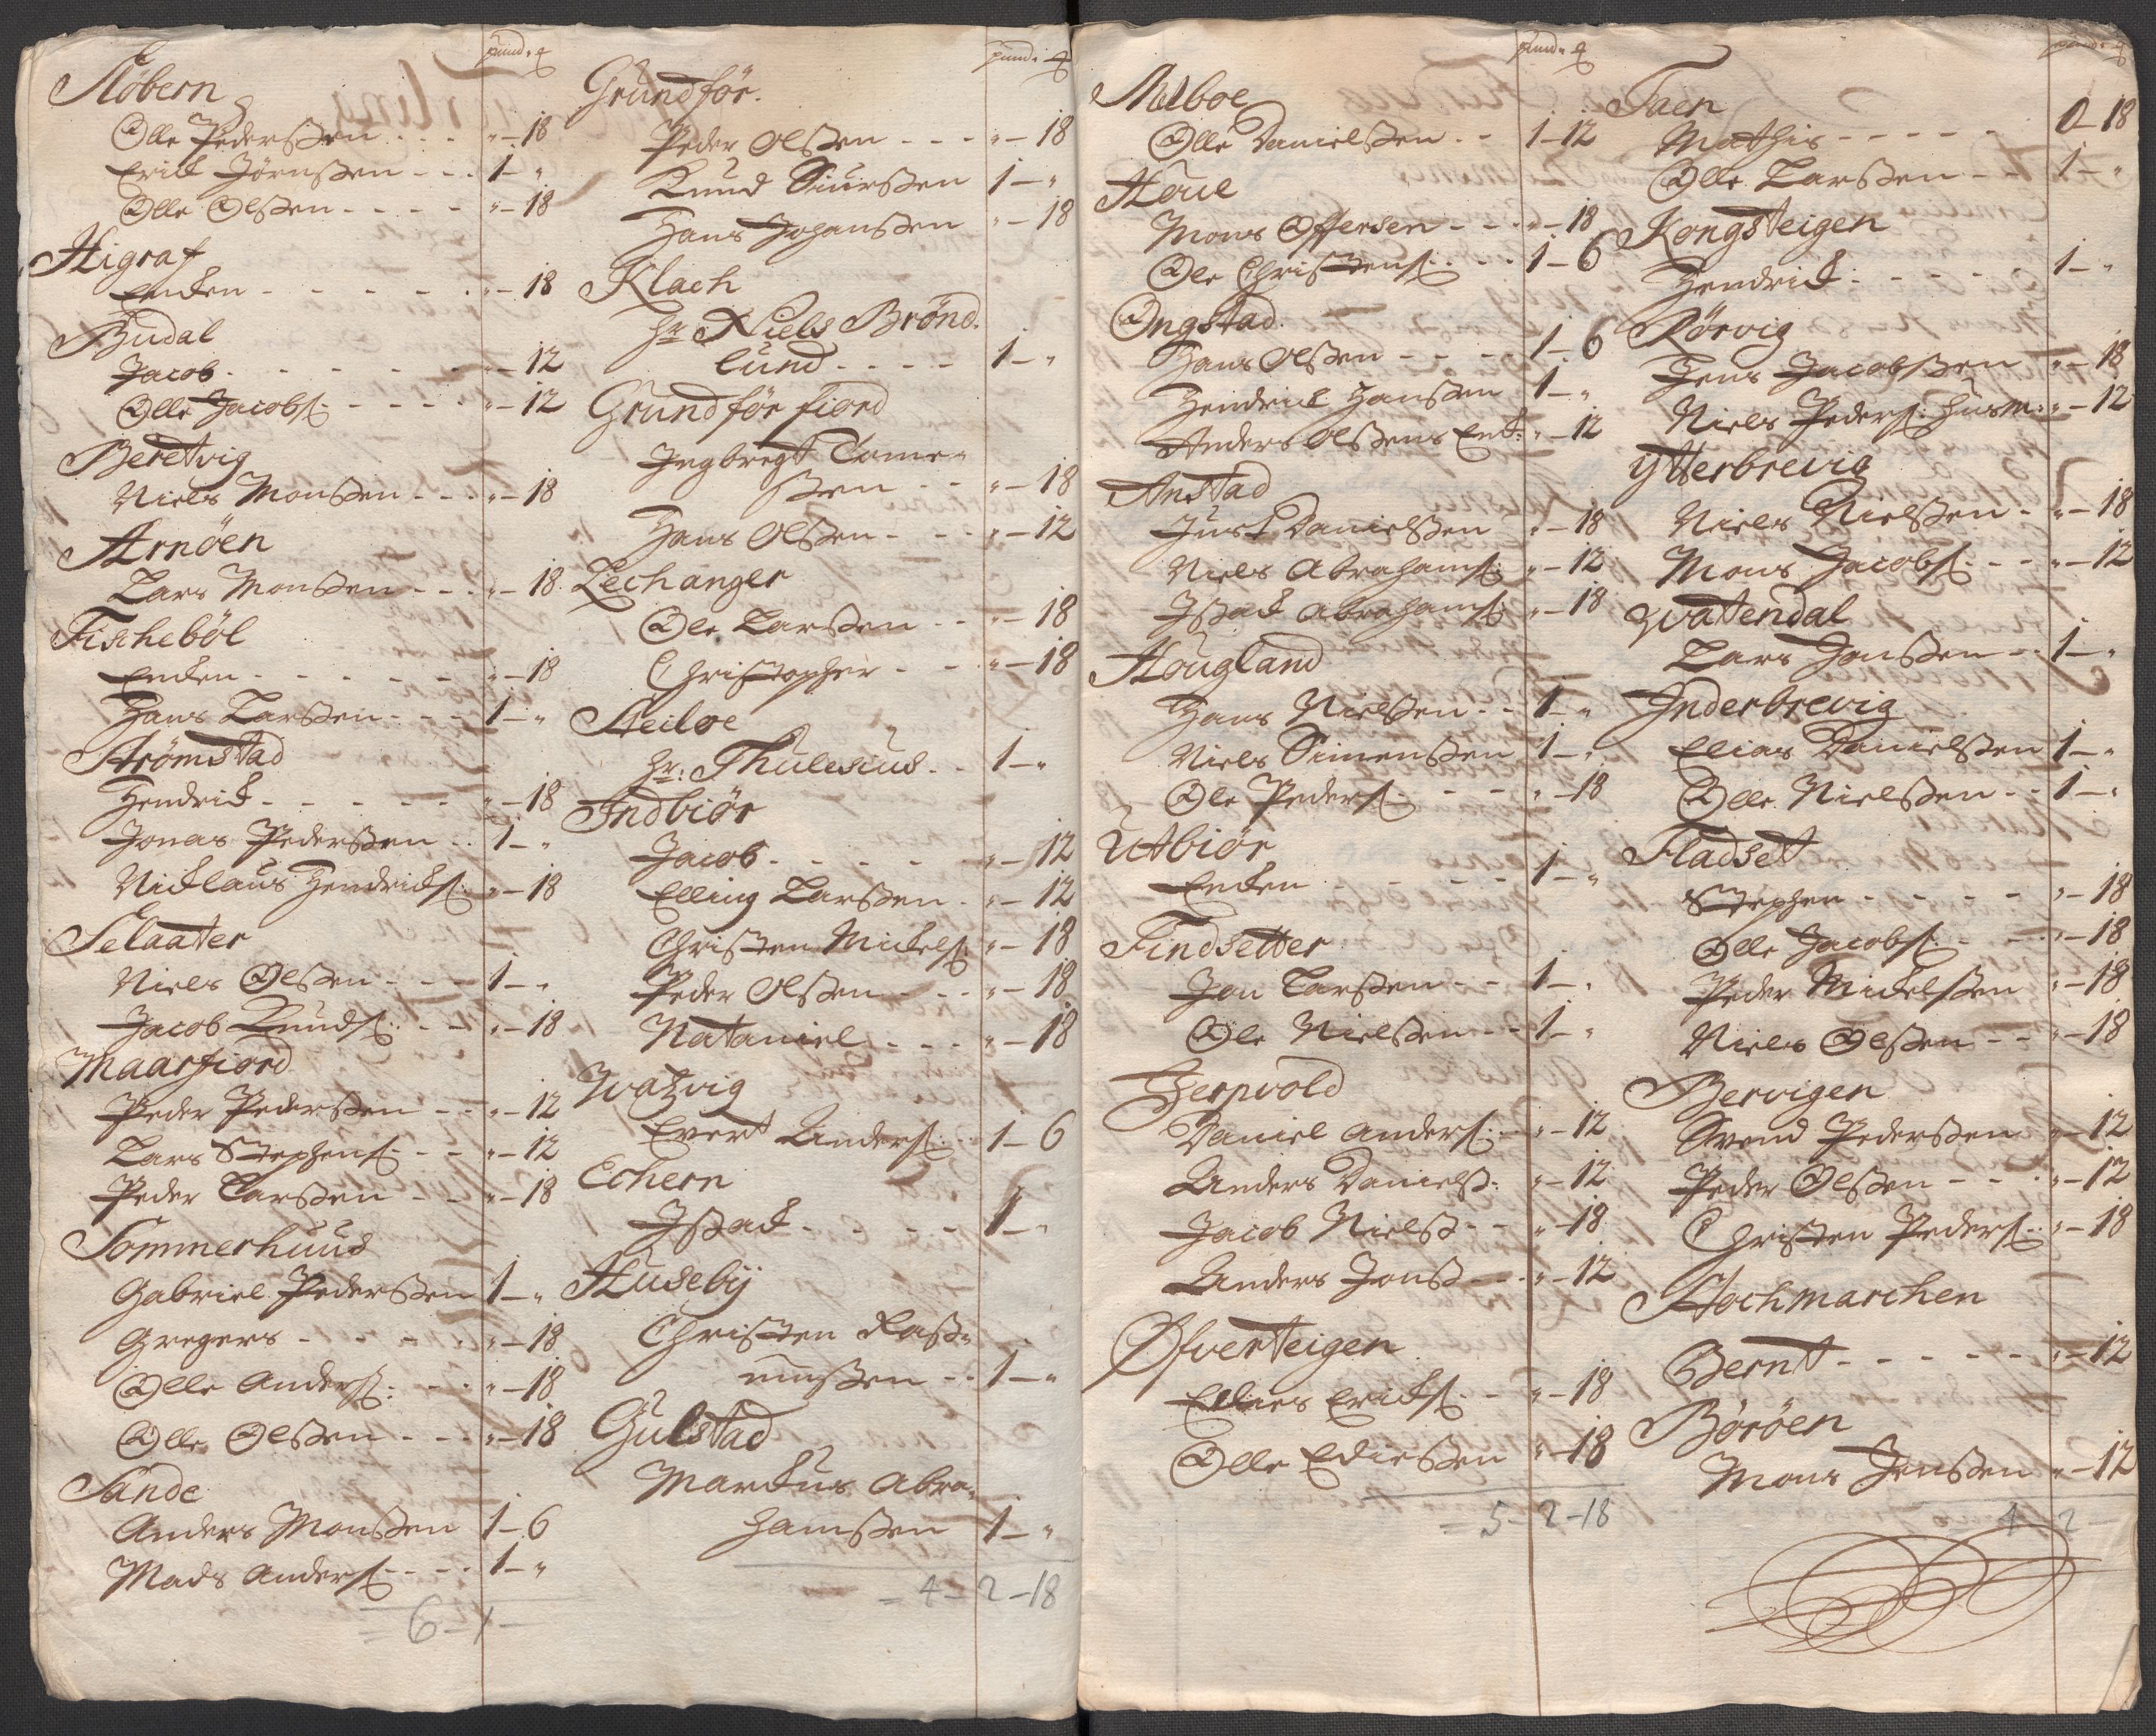 pund. ꝶ
Støbern
Olle Pederssen - - - „ - 18
Erick Jørenssen - - 1 - „
Olle Olssen - - - - „ - 18
Higraf
Encken - - - - - „ - 18
Budal
Jacob - - - - - - „ - 12
Olle Jacobs: - - - - „ - 12
Beretvig
Niels Monssen - - - „ - 18
Arnöen
Lars Monssen - - - „ - 18.
Fischeböl
Encken - - - - - „ - 18
Hans Larssen - - - 1 - „
Strömstad
Hendrick - - - - - „ - 18
Jonas Pederssen - - 1 - „
Nicklaus Hendricks: „ - 18
Selaater
Niels Olssen - - - 1 - „
Jacob Knuds: - - „ - 18
Maarfiord
Peder Pederssen - - „ - 12
Lars Stephens: - - „ - 12
Peder Larssen - - „ - 18
Sommerhuus
Gabriel Pederssen 1 - „
Gregers - - - - - „ - 18
Olle Anders: - - - „ - 18
Olle Olssen - - - „ - 18
Sande
Anders Monssen 1 - 6
Mads Anders: - - - 1 - „
= 6 - 1 -
pund. ꝶ
Grundför.
Peder Olssen - - - „ - 18
Knud Siurssen 1 - „
Hans Johanssen „ - 18
Klach
Hr Niels Brönd.
lund - - - - 1 - „
Grundför fiord
Ingbregt Tome-
ssen - - „ - 18
Hans Olssen - - - „ - 12
Lechanger
Ole Larssen - - „ - 18
Christopher - - „ - 18
Steiloe
Hr: Thulesius - - 1 - „
Indbiör
Jacob - - - - - „ - 12
Elling Larssen - „ - 12
Christen Mickels: „ - 18
Peder Olssen - - - „ - 18
Nataniel - - - „ - 18
Evert Anders: - - 1 - 6
Echern
Issack - - - - 1 - „
Husebÿ
Christen Rass-
mussen - - 1 - „
Gulstad
Marckus Abra-
hamssen 1 - „
= 4 - 2 - 18
pund. ꝶ
Melboe
Olle Danielssen - - 1 - 12
Houe
Mons Offersen - - - „ - 18
Ole Christens: - - - 1 - 6
Ongstad
Hans Olssen - - - - 1 - 6
Hendrick Hanssen 1 - „
Anders Olssens Enk: „ - 12
Anstad
Just Danielssen „ - 18
Niels Abrahams: „ - 12
Issack Abrahams: „ - 18
Hougland
Hans Nielssen - - 1 - „
Niels Simenssen 1 - „
Ole Peders: - - - „ - 18
Utbiör
Encken - - - - 1 - „
Findsetter
Jon Larssen - - 1 - „
Ole Nielssen - - 1 - „
Herpvold
Daniel Anders: - „ - 12
Anders Daniels: „ - 12
Jacob Nielss - - „ - 18
Anders Jonss - - - „ - 12
Øfverteigen
Edies Ericks: - - „ - 18
Olle Ediessen „ - 18
= 5 - 2 - 18
pund. ꝶ
Taen
Mathis - - - - - 0 - 18
Olle Larssen - - 1 - „
Kongsteigen
Hendrick - - - - - 1 - „
Rörvig
Jens Jacobssen „ - 18
Niels Peders: husm: „ - 12
Ytterbrevig
Niels Nielssen - „ - 18
Mons Jacobs: - - „ - 12
Lars Jonssen - - 1 - „
Inderbrevig
Elias Danielssen 1 - „
Olle Nielssen - - 1 - „
Fladset
Stephen - - - - „ - 18
Olle Jacobs: - - „ - 18
Peder Mickelssen „ - 18
Niels Olssen - - „ - 18
Bervigen
Svend Pederssen „ - 12
Peder Olssen - - - „ - 12
Christen Peders: „ - 18
Stochmarchen
Bernt - - - - - „ - 12
Böröen
Mons Jenssen „ - 12
= 4 - 2 -